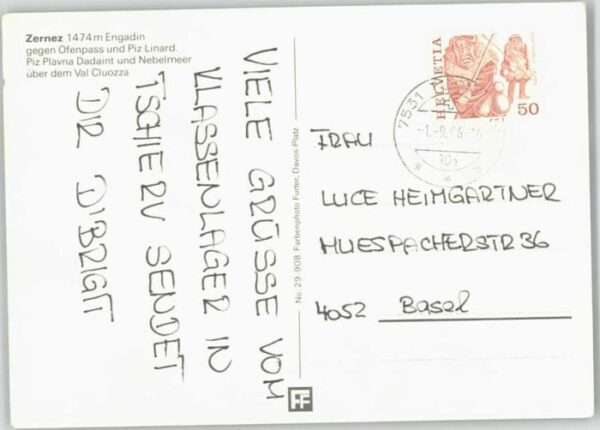 Zernez 1474 m Engadin
gegen Ofenpass und Piz Linard.
Piz Plavna Dadaint und Nebelmeer
über dem Val Cluozza
VIELE GRÜSSE VOM
KLASSENLAGER IN
TSCHIERV SENDET
DIR D'BRIGIT
No. 29 908 Farbenphoto Furter, Davos Platz
HELVETIA
50
7531
FRAU
LUCE HEIMGARTNER
MUESPACHERSTR 36
4052 Basel